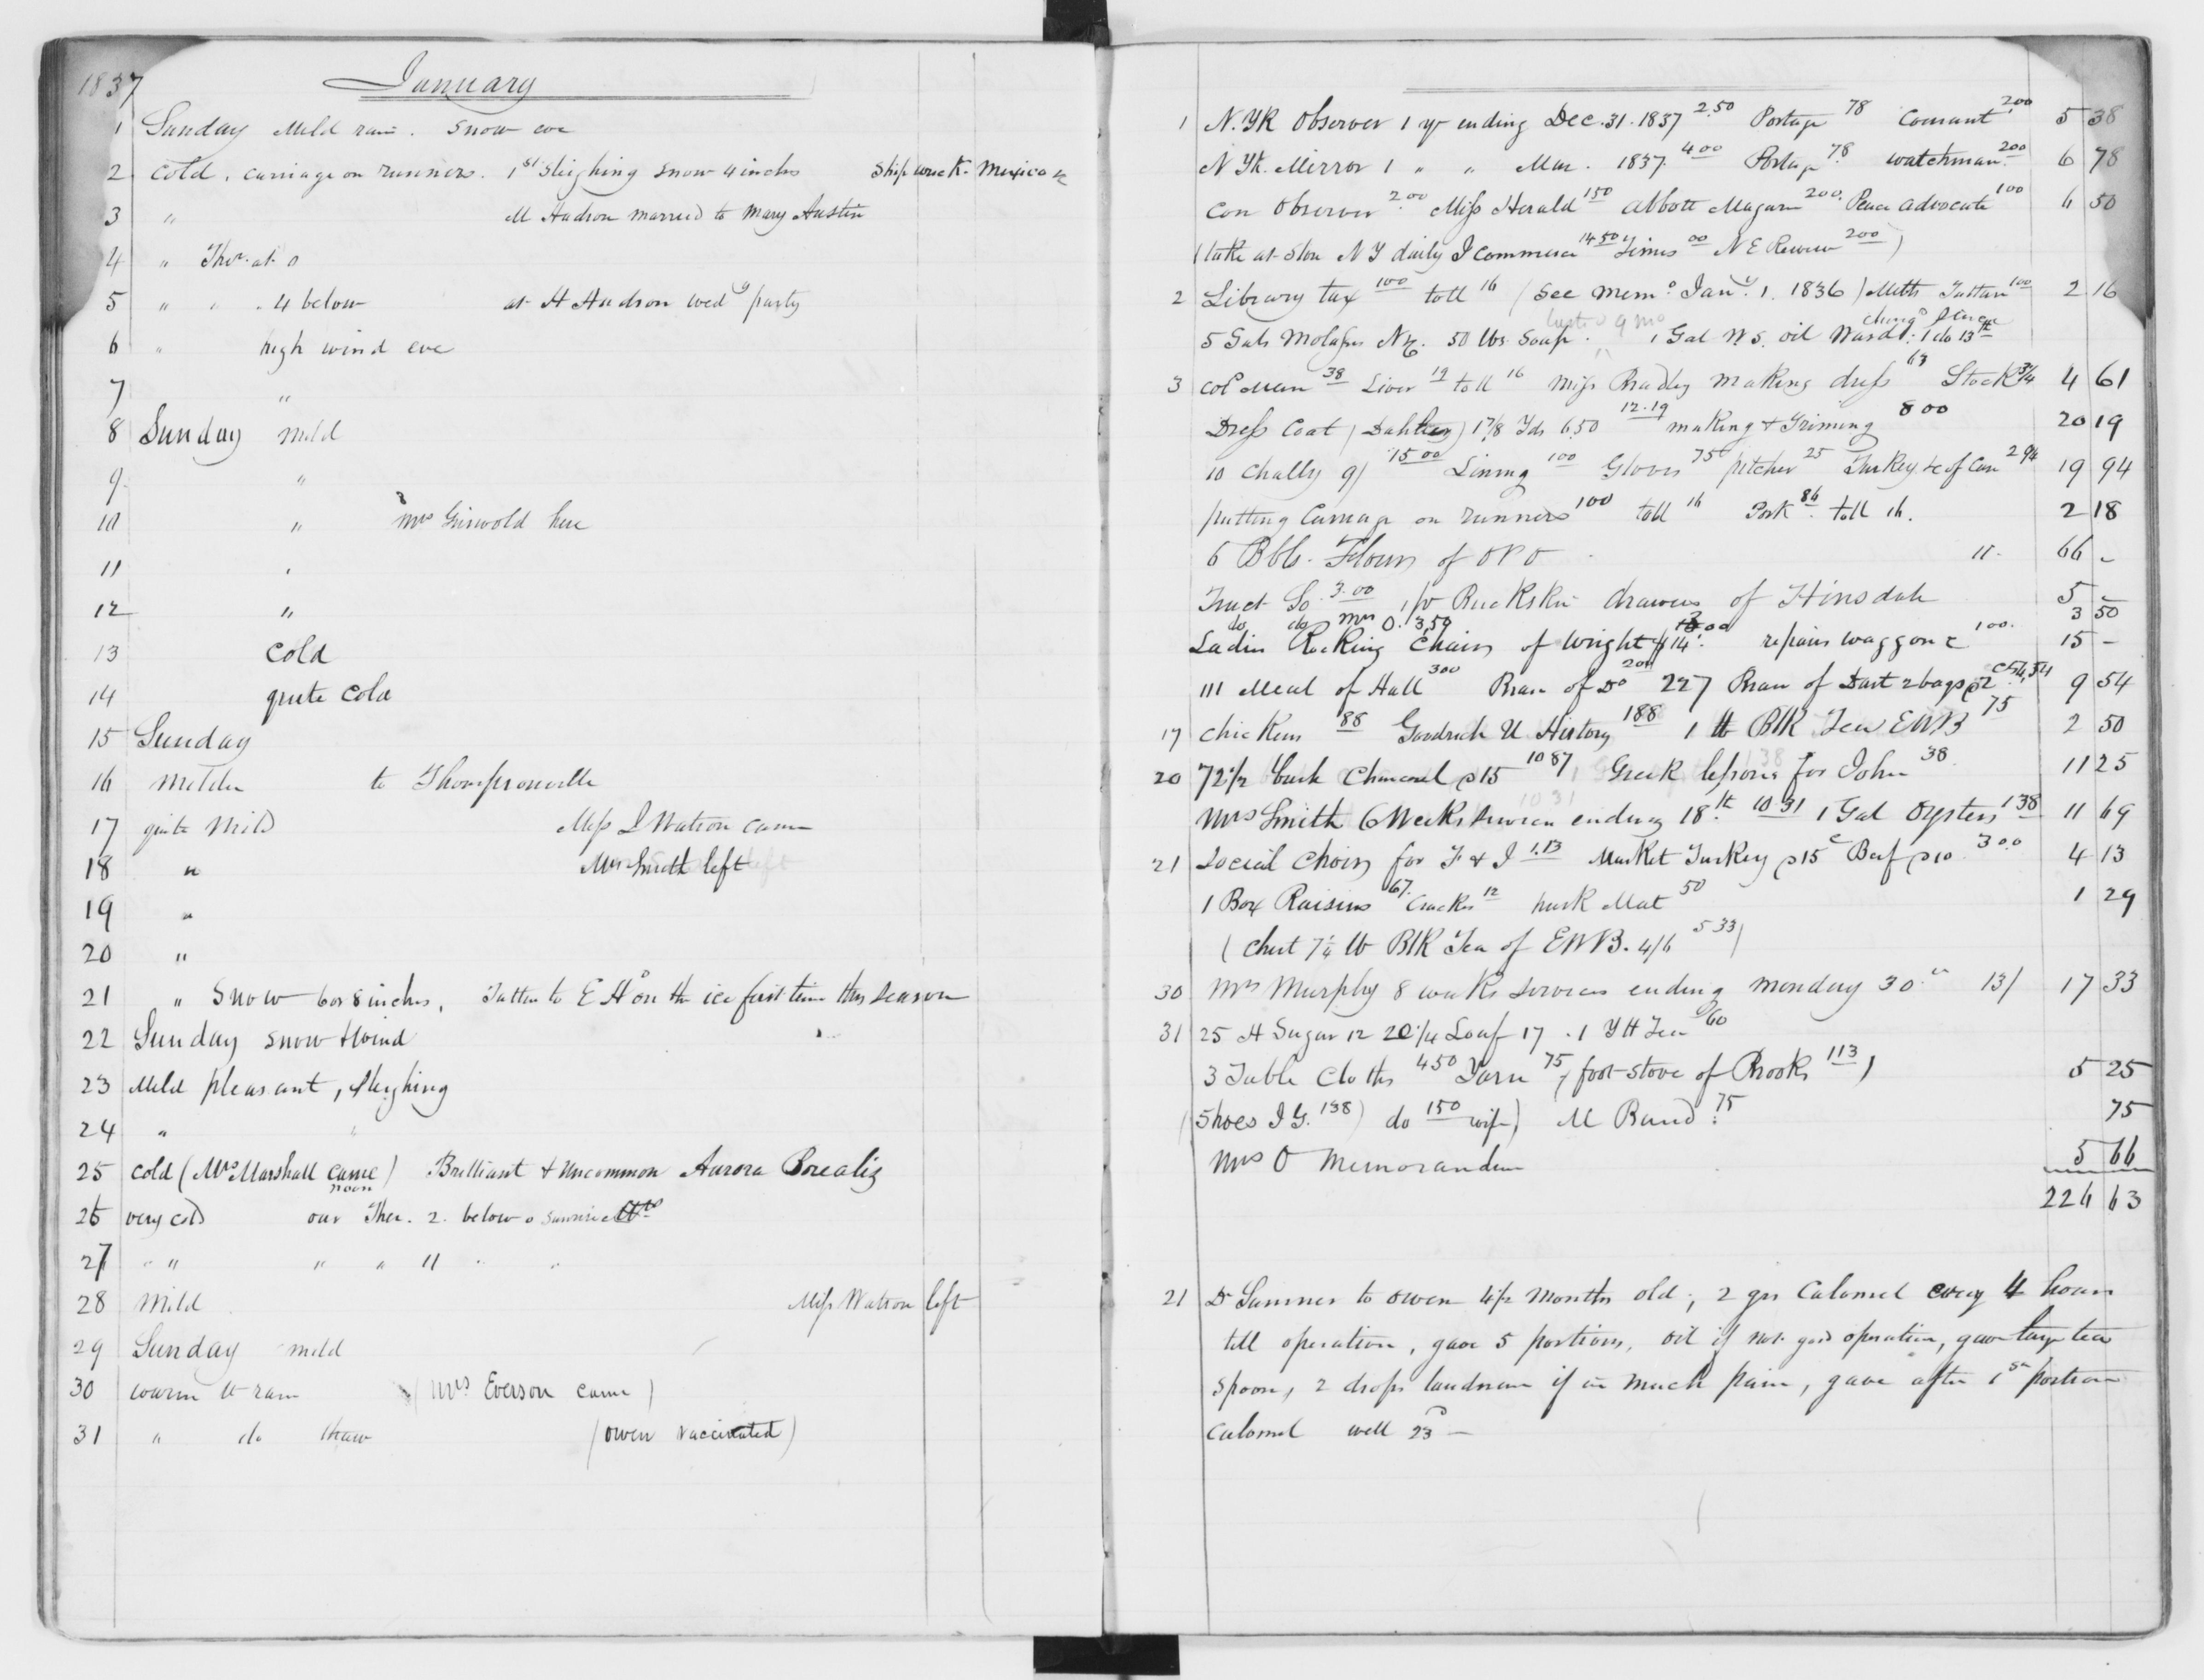 1837 January
1 Sunday Mild rain. Snow eve
2 cold. carriage on runners. 1st Sleighing snow 4 inches Ship wreck. Mexican
3 " M Hudson married to Mary Austin
4 " Ther. at 0
5 " " . 4 below at H Hudson wedg party
6 " high wind eve
7 "
8 Sunday mild
9 "
10 " Mrs Griswold here
11 "
12 "
13 cold
14 quite cold
15 Sunday
16 milder to Thompsonville
17 quite mild Miss J Watson came
18 " Mrs Smith left
19 "
20 "
21 " Snow 6 or 8 inches, to E H on the ice first time this season
22 Sunday snow & wind
23 Mild pleasant, sleighing
24 " "
25 cold (Mrs Marshall came noon) Brilliant & uncommon Aurora Borealis
26 very cold our Ther. 2. below 0 sunrise
27 " " " " 11 " "
28 mild Miss Watson left
29 Sunday mild
30 warm & rain (Mrs Everson came)
31 " do thaw (Owen vaccinated)
1 N. YK Observer 1 yr ending Dec. 31. 1837 2.50 Postage 78 Courant 200 5 38
N Yk. Mirror 1 " " Mar. 1837. 400 Postage 78 watchman 200 6 78
Con Observer 2.00 Miss Herald 150 Abbott Magazin 200. Peace Advocate 100 6 50
(take at store N Y daily J Commerce 1450 Times 00 N E Review 200)
2 Library tax 100 toll 16 (See Memo. Jany. 1. 1836) 100 2 16
5 Gals Molasses 50 lbs Soap. 1 Gal W. S. oil Ward. 1 do 13th
3 38 Liver 19 toll 16 Miss Bradley making dress 63 Stock 3/4 4 61
Dress Coat (Dahlia) 1 7/8 Yds 6.50 12.19 making & Triming 800 20 19
10 Chally 9/ 15 00 Lining 100 Gloves 75 pitcher 25 Turkey &c of Can 2 94 19 94
putting Carriage on runners 100 toll 16 Pork 86 toll 16. 2 18
6 Bbls. Flour of O P O 11. 66 -
Tract So 3.00 1 pr Buckskin drawers of Hinsdale 5 -
do do Mrs O. 3,50 3 50
Ladies Rocking Chairs of Wright $14. repairs waggon &c 100. 15 -
111 Meal of Hall 300 Bran of Do 200 227 Bran of Dart 2 bags 9 54
17 Chickens 88 Goodrich U History 188 1 lb Blk Tea EWB 75 2 50
20 72 1/2 bush Charcoal @15 10 87 Greek lessons for John 38 11 25
Mrs Smith 6 Weeks services ending 18th 10 31 1 Gal Oysters 138 11 69
21 Social Choir for F & J 1.13 Market Turkey @15c Beef @10 300 4 13
1 Box Raisins 67. Cracker 12 husk Mat 50 1 29
(Chest 7 1/4 lb Blk Tea of EWB. 4/6 5 33)
30 Mrs Murphy 8 weeks services ending monday 30th 13/ 17 33
31 25 H Sugar 12 20 1/4 Loaf 17 . 1 Y H Tea 60
3 Table Cloths 450 Yarn 75 (foot-stove of Brooks 113) 5 25
(Shoes J G. 138) do 150 wife) M Band. 75 75
Mrs O Memorandum 5 66
224 63
21 Dr Sumner to Owen 4 1/2 months old; 2 grs Calomel every 4 hours
till operation, gave 5 portions, oil if not good operation, gave large tea
spoon, 2 drops laudnum if in much pain, gave after 1st portion
calomel well 23d —